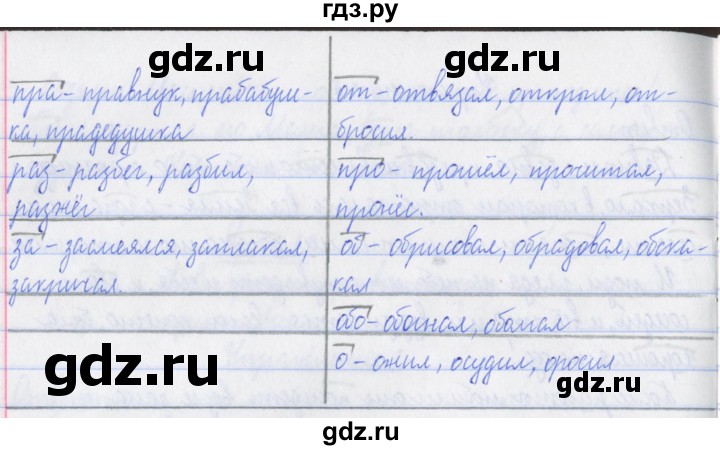 гдз.ру
gdz.ru gdz.ru
пра- правнук, прабабуш-
ка, прадедушка
раз- разбег, разбил,
разжёг
за- засмеялся, заплакал,
закричал.
от- отвязал, открыл, от-
бросил.
про- прошёл, прочитал,
пронёс.
об- обрисовал, обрадовал, обска-
кал
обо- обогнал,
о- ожил, осудил, оросил
gdz.ru
gdz.ru
gdz.ru